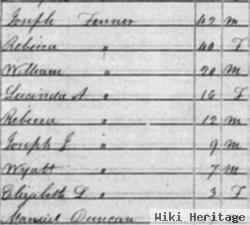 Joseph Fenner 42 m
Rebecca " 40 F
William " 20 m
Lucinda A " 16 F
Rebecca " 12 m
Joseph J " 9 m
Wyatt " 7 m
Elizabeth L " 3 F
Manuel Duncan
Wiki Heritage